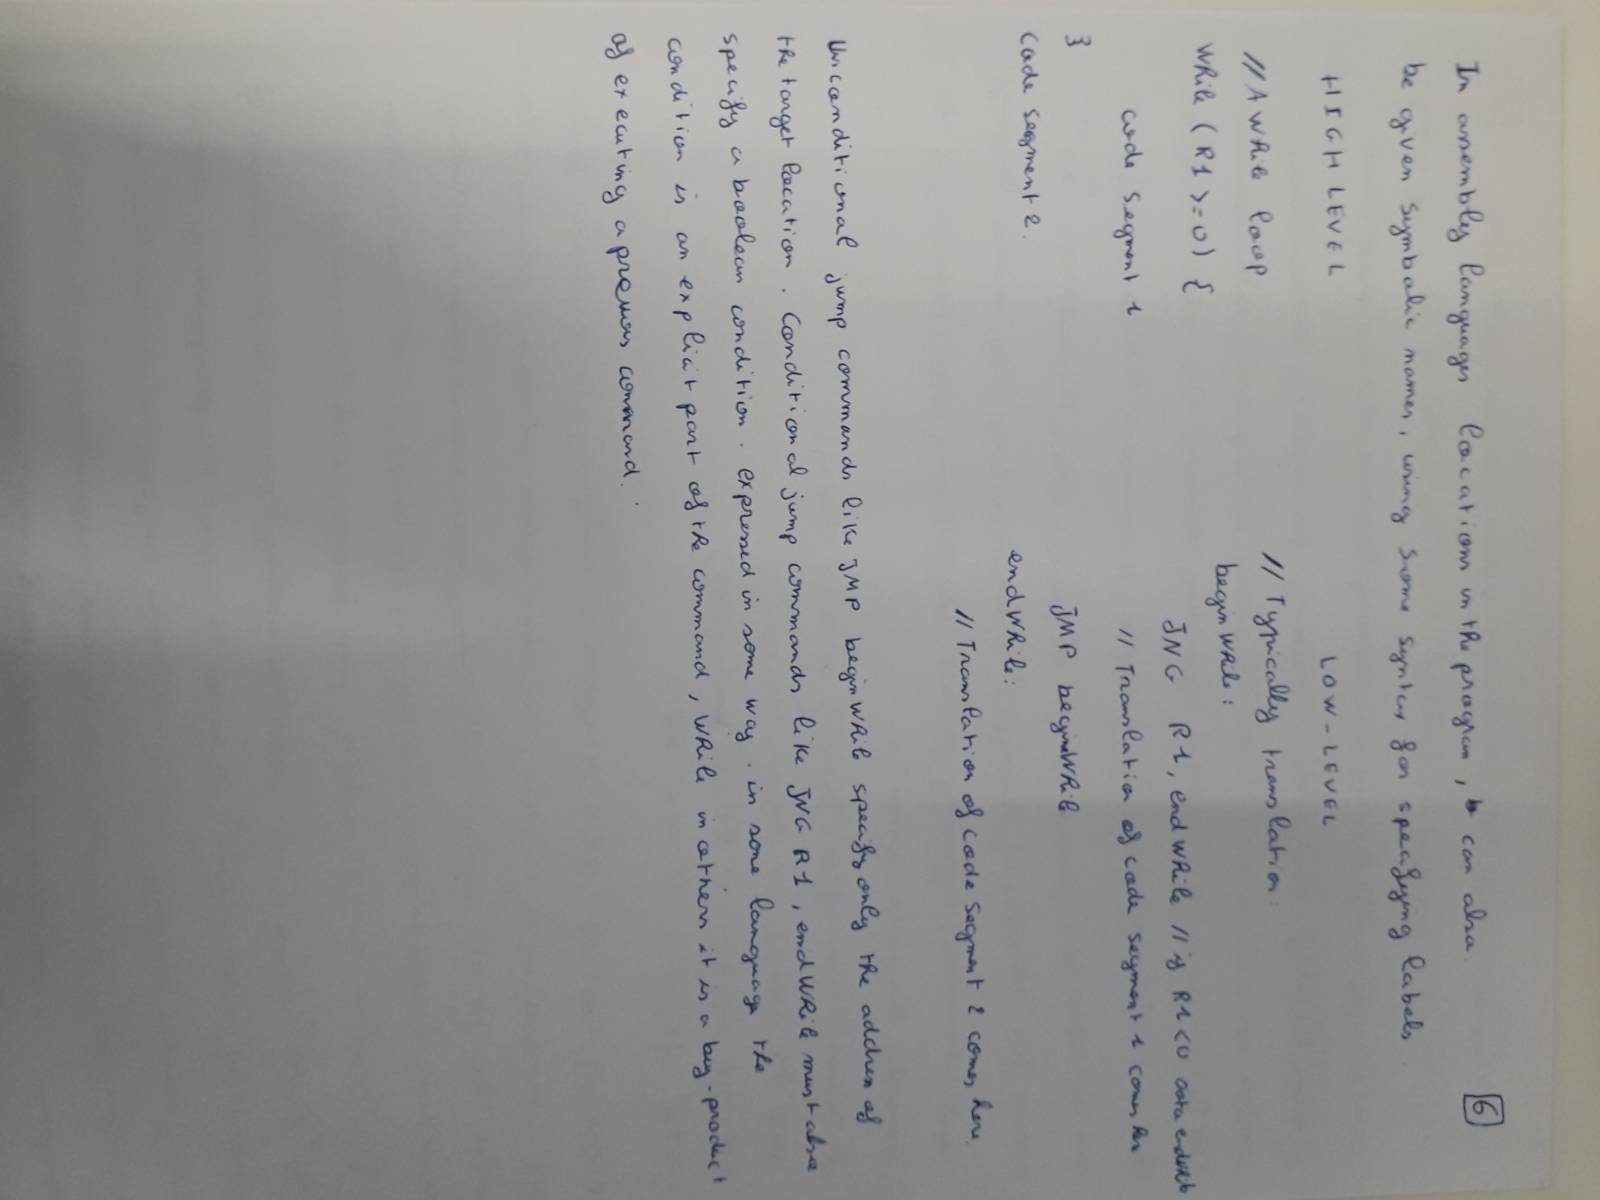 6
In assembly languages location in the program, can also
be given symbolic names, using some syntax for specifying labels.
HIGH LEVEL
LOW-LEVEL
// A While loop
// Typically translation:
While (R1 >= 0) {
beginWhile:
JNG R1, endWhile // if R1<0 goto endWhile
code segment 1
// Translation of code segment 1 comes here
}
JMP beginWhile
Code segment 2.
endWhile:
// Translation of code segment 2 comes here.
Unconditional jump commands like JMP beginWhile specify only the address of
the target location. Conditional jump commands like JNG R1, endWhile must also
specify a boolean condition. expressed in some way. in some language the
condition is an explicit part of the command, While in others it is a by-product
of executing a previous command.